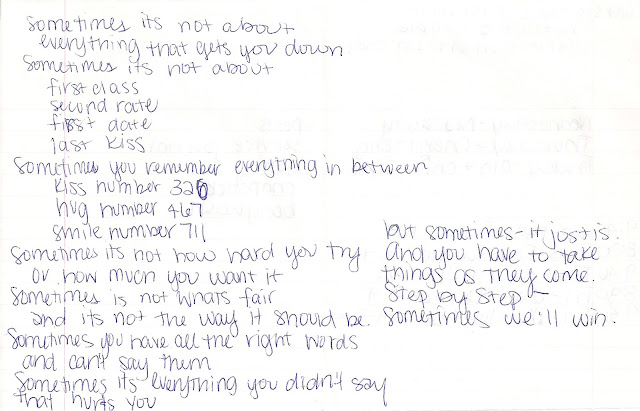 sometimes its not about
everything that gets you down
sometimes its not about
first class
second rate
first date
last kiss
sometimes you remember everything in between
kiss number 326
hug number 467
smile number 711
sometimes its not how hard you try
or how much you want it
sometimes is not whats fair
and its not the way it should be.
sometimes you have all the right words
and can't say them
sometimes its everything you didn't say
that hurts you
but sometimes - it just is.
And you have to take
things as they come.
Step by Step -
sometimes we'll win.